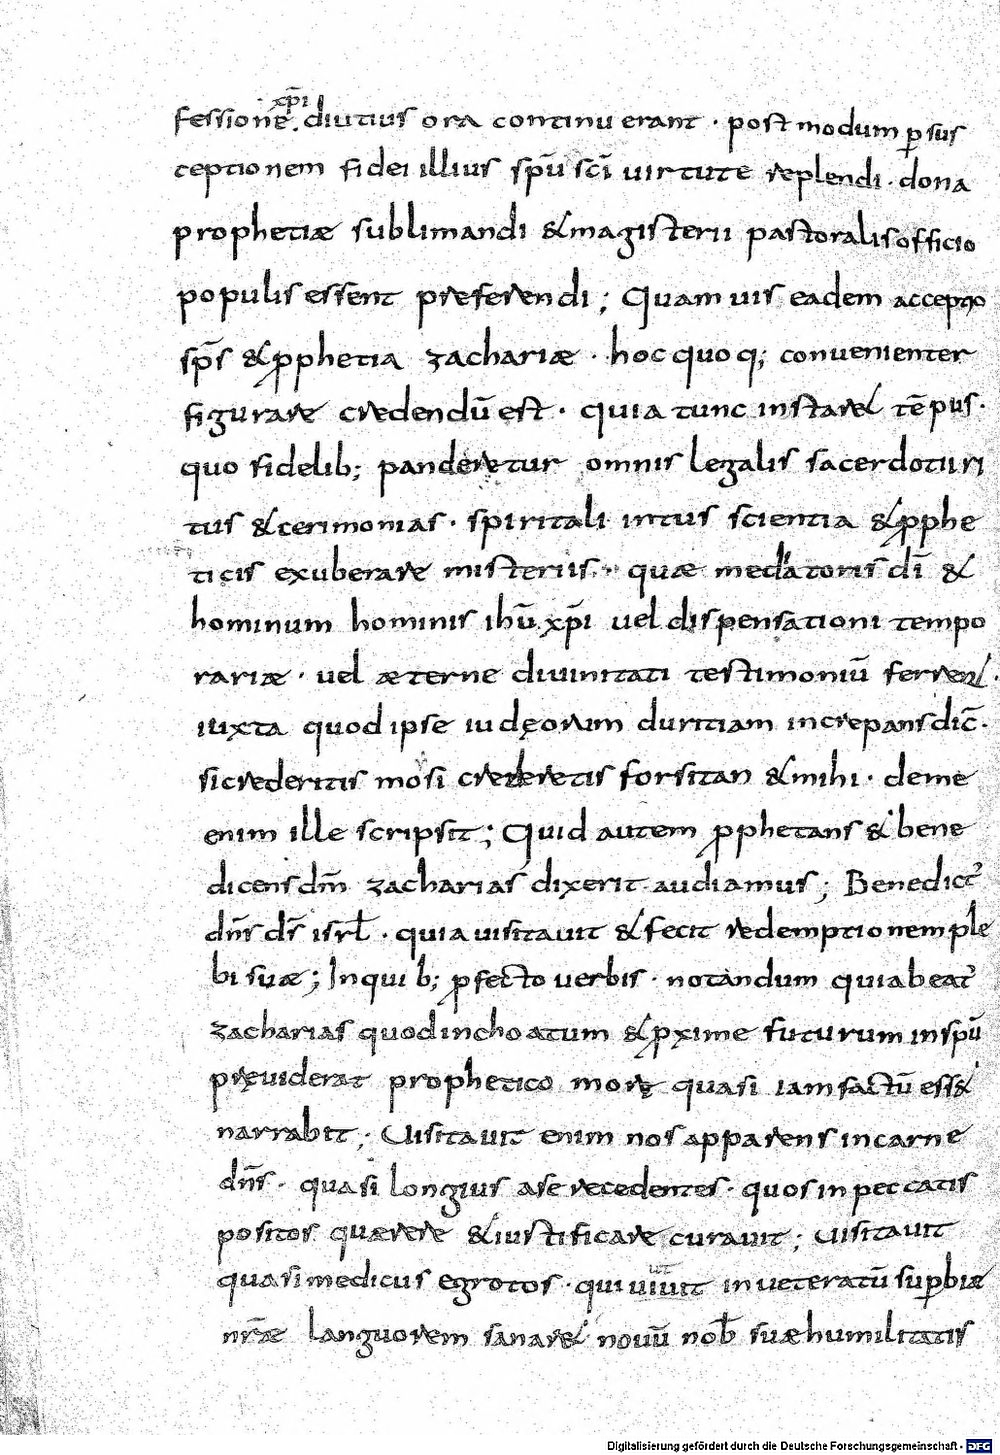 xp̄i
fessione. diutius ora continuerant · post modum ꝑ sus
ceptionem fidei illius sp̄u sc̄i uirtute replendi · dona
prophetiæ sublimandi &magisterii pastoralis officio
populis essent preferendi ; Quam uis eadem acceptio
sp̄s &ꝓphetia zachariæ · hoc quoq; conuenienter
figurare credendū est · quia tunc instar& tēpus ·
quo fidelib; panderetur omnis legalis sacerdotii ri
tus &cerimonias · spiritali intus scientia &ꝓphe
ticis exuberare misteriis · quæ mediatoris dī &
hominum hominis ihū xp̄i uel dispensationi tempo
rariæ · uel æterne diuinitati testimoniū ferren& ·
iuxta quod ipse iudęorum duritiam increpans dic̄ ·
si crederitis mosi crederetis forsitan &mihi · deme
enim ille scripsit ; Quid autem ꝓphetans & bene
dicens dm̄ zacharias dixerit audiamus ; Benedict᾿
dn̄s ds̄ isrł · quia uisitauit &fecit redemptionem ple
bi suæ ; In qui b; ꝓfecto uerbis · notandum quia beat᾿
zacharias quod inchoatum &ꝓxime futurum in sp̄u
pręuiderat prophetico morę quasi iam factū ess&
narrabit ; Uisitauit enim nos apparens in carne
dn̄s · quasi longius a se recedentes · quos in peccatis
positos quærere &iustificare curauit ; uisitauit
quasi medicus egrotos · qui ut inueteratū suꝑbiæ
nr̄æ languorem sanar& nouū nob̄ suæ humilitatis
Digitalisierung gefördert durch die Deutsche Forschungsgemeinschaft - DFG